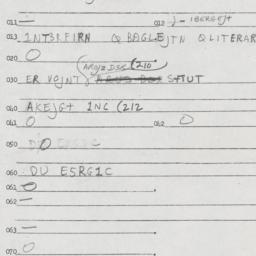 011 — 012 J - IBERGEJT
013 INT3RFIRN Q BAGLEJTN Q LITERAR
020 O
ARQJZ DSS (210
030 ER VOJNTJ SFTUT
040 AKEJGT INC (212
041 O 042 O
050
060 DU ESRGIC
061 O
062 —
063 —
070 O